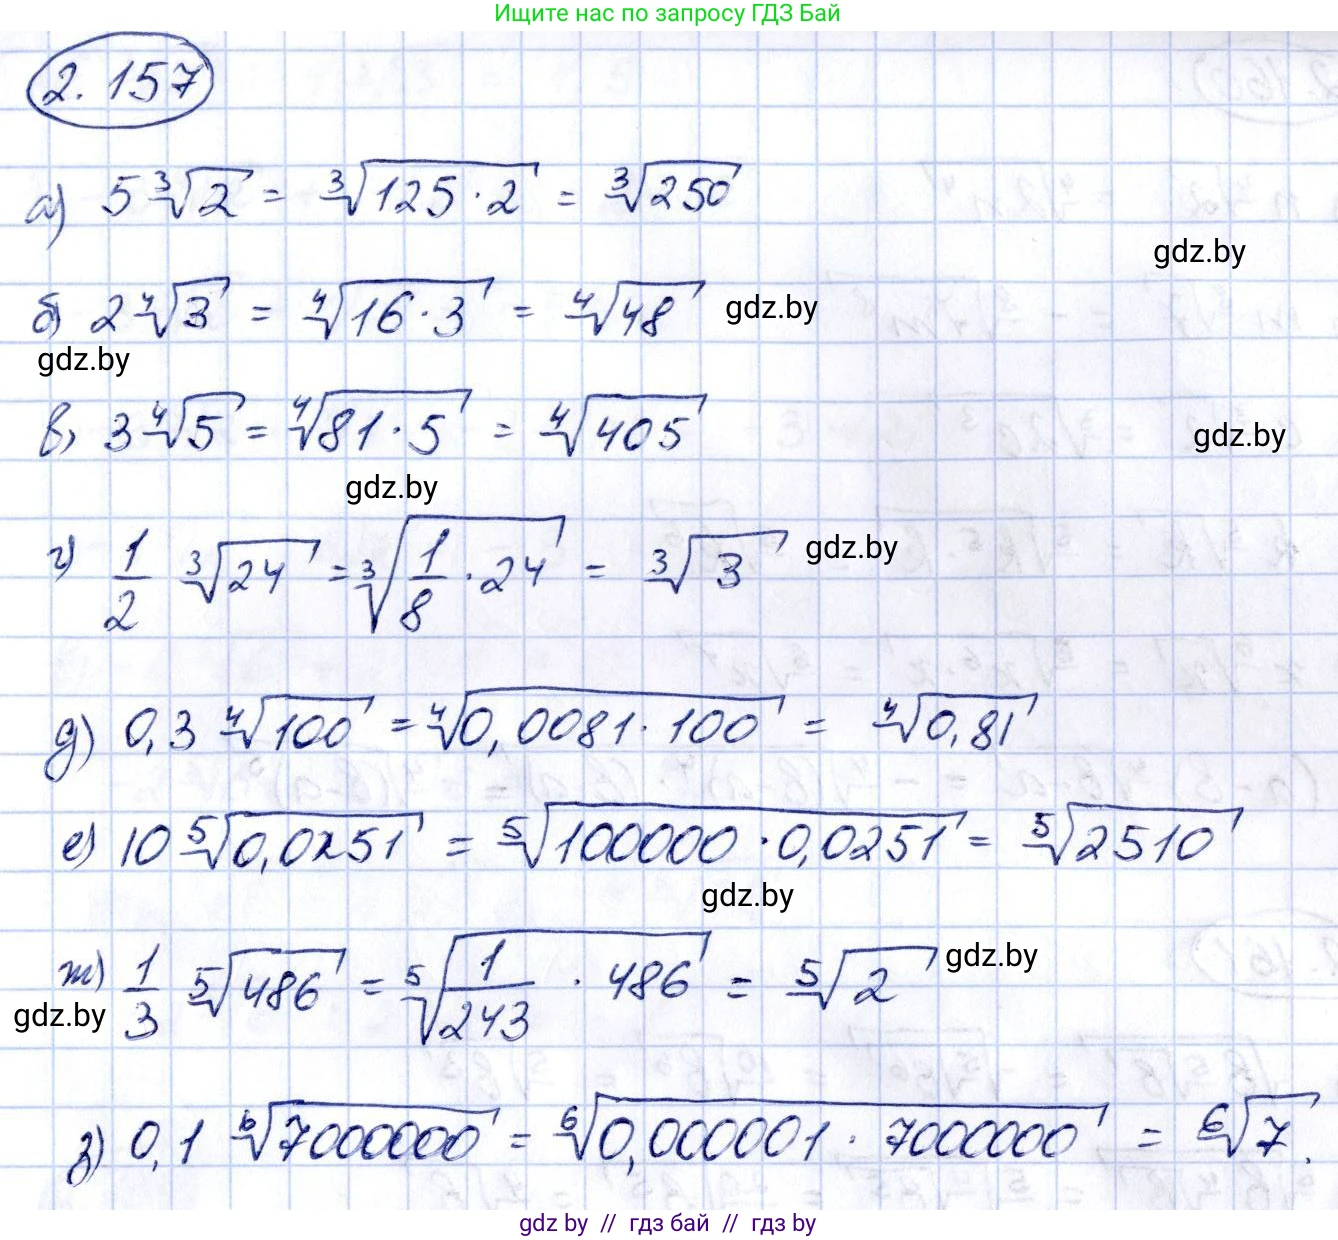 Ищите нас по запросу ГДЗ Бай
2.157
а) 5∛2 = ∛(125·2) = ∛250
gdz.by
б) 2∜3 = ∜(16·3) = ∜48 gdz.by
gdz.by
в) 3∜5 = ∜(81·5) = ∜405
gdz.by
gdz.by
г) 1/2 ∛24 = ∛(1/8·24) = ∛3 gdz.by
д) 0,3 ∜100 = ∜(0,0081·100) = ∜0,81
е) 10 ⁵√0,0251 = ⁵√(100000·0,0251) = ⁵√2510
gdz.by
ж) 1/3 ⁵√486 = ⁵√(1/243 · 486) = ⁵√2 gdz.by
gdz.by
з) 0,1 ⁶√7000000 = ⁶√(0,000001·7000000) = ⁶√7.
gdz by // гдз бай // гдз by